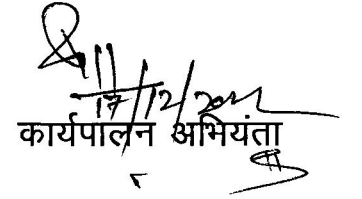 17/12/2022
कार्यपालन अभियंता